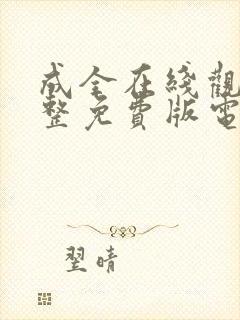 成全在线觀
整免費版電
翌晴